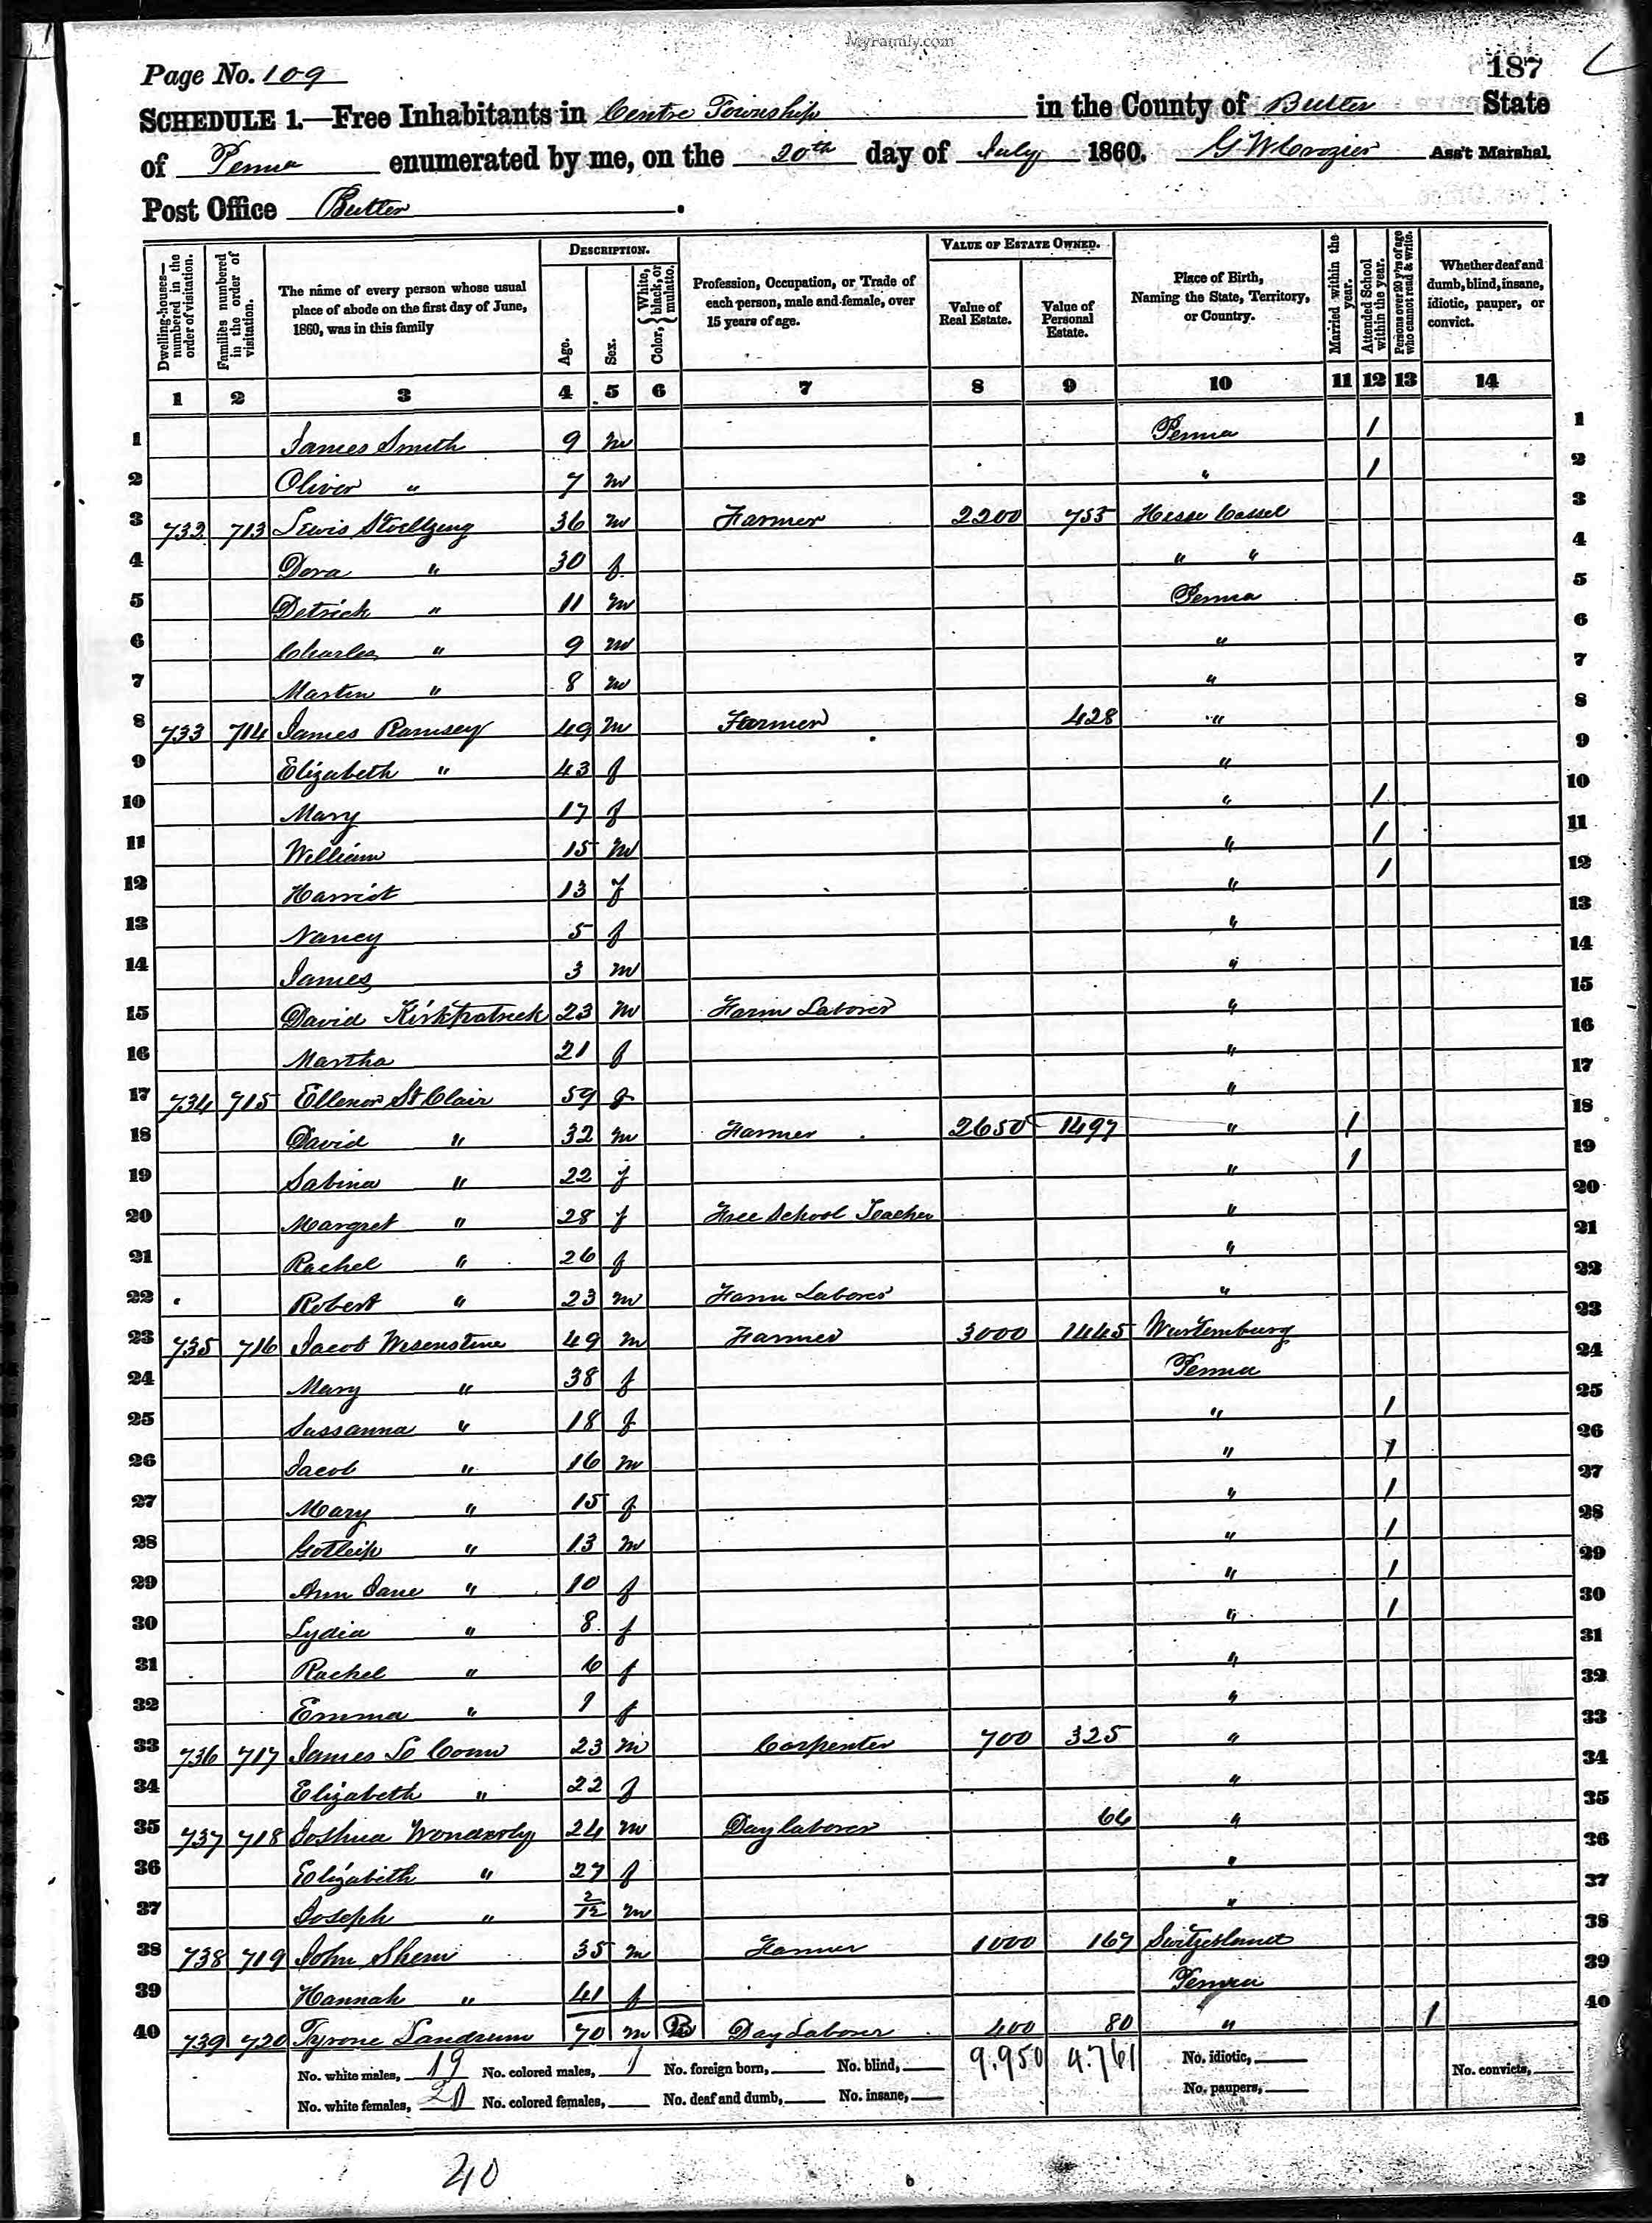 MyFamily.com
Page No. 109
187
SCHEDULE 1.—Free Inhabitants in Centre Township in the County of Butler State
of Penna enumerated by me, on the 20th day of July 1860. G W Crozier Ass't Marshal.
Post Office Butler.
Dwelling-houses—numbered in the order of visitation.
Families numbered in the order of visitation.
The name of every person whose usual place of abode on the first day of June, 1860, was in this family
DESCRIPTION.
Age.
Sex.
Color, { White, black, or mulatto.
Profession, Occupation, or Trade of each person, male and female, over 15 years of age.
VALUE OF ESTATE OWNED.
Value of Real Estate.
Value of Personal Estate.
Place of Birth, Naming the State, Territory, or Country.
Married within the year.
Attended School within the year.
Persons over 20 y'rs of age who cannot read & write.
Whether deaf and dumb, blind, insane, idiotic, pauper, or convict.
1 2 3 4 5 6 7 8 9 10 11 12 13 14
1 James Smith 9 m Penna / 1
2 Oliver " 7 m " / 2
3 732 713 Lewis 36 m Farmer 2200 753 Hesse Cassel 3
4 Dora " 30 f " " 4
5 Detrick " 11 m Penna 5
6 Charles " 9 m " 6
7 Martin " 8 m " 7
8 733 714 James Ramsey 49 m Farmer 428 " 8
9 Elizabeth " 43 f " 9
10 Mary 17 f " / 10
11 William 15 m " / 11
12 Harriot 13 f " / 12
13 Nancy 5 f " 13
14 James 3 m " 14
15 David Kirkpatrick 23 m Farm Laborer " 15
16 Martha 21 f " 16
17 734 715 Ellenor St Clair 59 f " 17
18 David " 32 m Farmer 2650 1497 " / 18
19 Sabina " 22 f " / 19
20 Margret " 28 f Free School Teacher " 20
21 Rachel " 26 f " 21
22 Robert " 23 m Farm Laborer " 22
23 735 716 Jacob Wisenstine 49 m Farmer 3000 1445 Wurtemburg 23
24 Mary " 38 f Penna 24
25 Sussanna " 18 f " / 25
26 Jacob " 16 m " / 26
27 Mary " 15 f " / 27
28 Gotleip " 13 m " / 28
29 Ann Jane " 10 f " / 29
30 Lydia " 8 f " / 30
31 Rachel " 6 f " 31
32 Emma " 1 f " 32
33 736 717 James 23 m Carpenter 700 325 " 33
34 Elizabeth " 22 f " 34
35 737 718 Joshua Wonderly 24 m Day laborer 66 " 35
36 Elizabeth " 27 f " 36
37 Joseph " 2/12 m " 37
38 738 719 John Shem 35 m Farmer 1000 167 Switzerland 38
39 Hannah " 41 f Penna 39
40 739 720 Tyrone Landrum 70 m B Day Laborer 400 80 " / 40
No. white males, 19 No. colored males, 1 No. foreign born, No. blind, 9.950 4.761 No. idiotic, No. convicts,
No. white females, 20 No. colored females, No. deaf and dumb, No. insane, No. paupers,
40